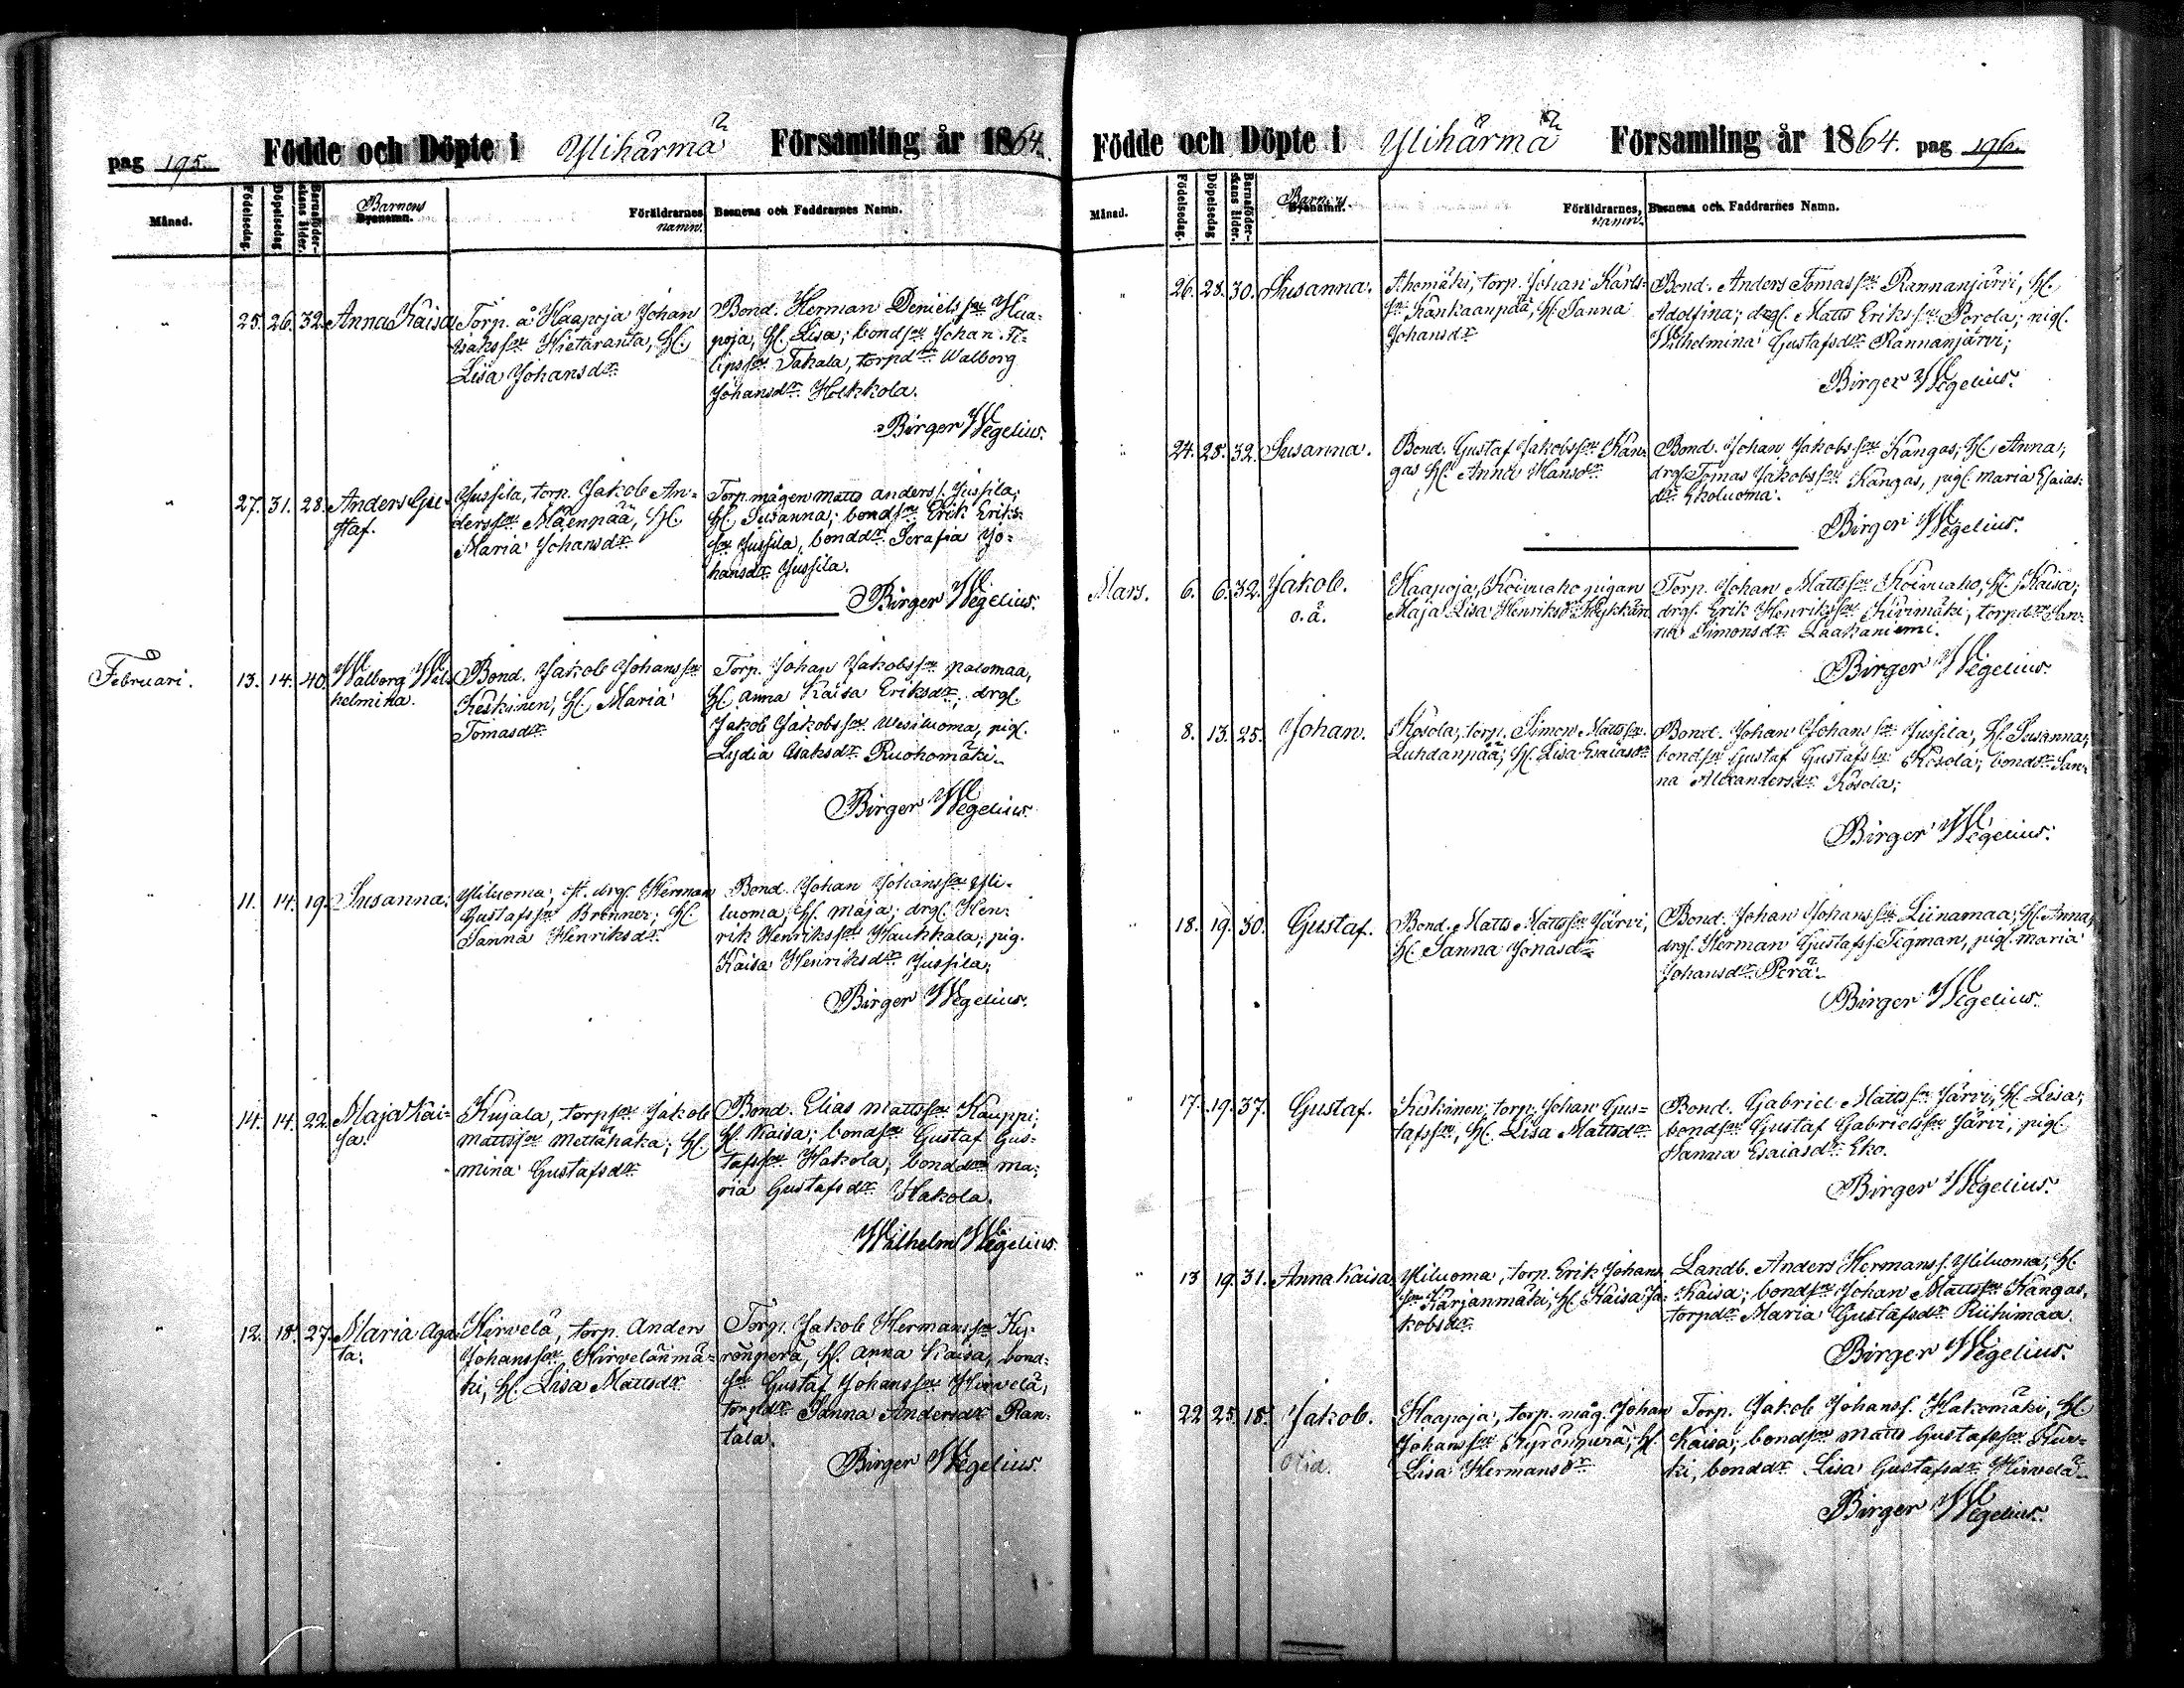 pag 195. Födde och Döpte i Ylihärmä Församling år 1864.
Månad. Födelsedag. Döpelsedag Barnaföder-skans ålder. Barnens Byanamn. Föräldrarnes namn. Barnens och Faddrarnes Namn.
" 25. 26. 32. Anna Kaisa
Torp. å Haapoja Johan
Isaksson Hietaranta, H.
Lisa Johansdr
Bond. Herman Danielsson Haa-
poja, H. Lisa; bondson Johan Fi-
lipsson Takala, torpdr Walborg
Johansdr Holkkola.
Birger Wegelius.
" 27. 31. 28. Anders Gu-
staf.
Jussila, torp. Jakob An-
dersson Mäenpää, H.
Maria Johansdr
Torp.mågen Matts Anders s. Jussila;
H. Susanna; bondson Erik Eriks-
son Jussila, bonddr Serafia Jo-
hansdr Jussila.
Birger Wegelius.
Februari. 13. 14. 40. Walborg Wil-
helmina.
Bond. Jakob Johansson
Keskinen, H. Maria
Tomasdr
Torp. Johan Jakobsson Palomaa,
H. Anna Kaisa Eriksdr; drgl.
Jakob Jakobsson Wesiluoma, pigl.
Lydia Isaksdr Ruohomäki.
Birger Wegelius.
" 11. 14. 19. Susanna.
Yliluoma, st. drgl. Herman
Gustafsson Brenner; H.
Sanna Henriksdr
Bond. Johan Johansson Yli-
luoma, H. Maja; drgl. Hen-
rik Henriksson Haukkala; pig.
Kaisa Henriksdr Jussila;
Birger Wegelius.
" 14. 14. 22. Maja Kai-
sa.
Kujala, torpson Jakob
Mattsson Mettähaka; H.
Mina Gustafsdr
Bond. Elias Mattsson Kauppi;
H. Kaisa; bondson Gustaf Gus-
tafsson Hakola, bonddr Ma-
ria Gustafsdr Hakola.
Wilhelm Wegelius.
" 12. 18. 27. Maria Aga-
ta.
Hirvelä, torp. Anders
Johansson Hirvelänmä-
ki, H. Lisa Mattsdr
Torp. Jakob Hermansson Ky-
rönperä, H. Anna Kaisa, bond-
son Gustaf Johansson Hirvelä,
torpdr Sanna Andersdr Ran-
tala.
Birger Wegelius.
Födde och Döpte i Ylihärmä Församling år 1864. pag 196.
Månad. Födelsedag. Döpelsedag Barnaföder-skans ålder. Barnens Byanamn. Föräldrarnes namn. Barnens och Faddrarnes Namn.
" 26. 28. 30. Susanna.
Ahomäki, torp. Johan Karls-
son Kankaanpää, H. Sanna
Johansdr
Bond. Anders Tomasson Rannanjärvi, H.
Adolfina; drgl. Matts Eriksson Porola; pigl.
Wilhelmina Gustafsdr Rannanjärvi;
Birger Wegelius.
" 24. 28. 32. Susanna.
Bond. Gustaf Jakobsson Kan-
gas, H. Anna Hansdr
Bond. Johan Jakobsson Kangas, H. Anna;
drgl. Tomas Jakobsson Kangas, pigl. Maria Esaias-
dr Ekoluoma.
Birger Wegelius.
Mars. 6. 6. 32. Jakob.
o.ä.
Haapoja, Koivuaho pigan
Maja Lisa Henriksdr
Torp. Johan Mattsson Koivuaho, H. Kaisa;
drgl. Erik Henriksson Kivimäki, torpdr San-
na Simonsdr Laakaniemi.
Birger Wegelius.
" 8. 13. 25. Johan.
Kosola, torp. Simon Mattsson
Luhdanpää; H. Lisa Esaiasdr
Bond. Johan Johansson Jussila, H. Susanna;
bondson Gustaf Gustafsson Kosola; bondr San-
na Alexandersdr Kosola;
Birger Wegelius.
" 18. 19. 30. Gustaf.
Bond. Matts Mattsson Järvi,
H. Sanna Jonasdr
Bond. Johan Johansson Liinamaa, H. Anna,
drgl. Herman Gustafss. Tigman, pigl. Maria
Johansdr Perä.
Birger Wegelius.
" 17. 19. 37. Gustaf.
Keskinen, torp. Johan Gus-
tafsson, H. Lisa Mattsdr
Bond. Gabriel Mattsson Järvi, H. Lisa;
bondson Gustaf Gabrielsson Järvi, pigl.
Sanna Esaiasdr Eko.
Birger Wegelius.
" 13 19. 31. Anna Kaisa
Yliluoma, torp. Erik Johans-
son Karjanmäki, H. Kaisa Ja-
kobsdr
Landb. Anders Hermanss. Yliluoma, H.
Kaisa; bondson Johan Mattsson Kangas,
torpdr Maria Gustafsdr Riihimaa.
Birger Wegelius.
" 22 25. 18. Jakob.
Haapoja, torp. måg. Johan
Johansson Kyrönperä, H.
Lisa Hermansdr
Torp. Jakob Johanss. Hakomäki, H.
Kaisa; bondson Matts Gustafsson Kur-
ki, bonddr Lisa Gustafsdr Hirvelä.
Birger Wegelius.